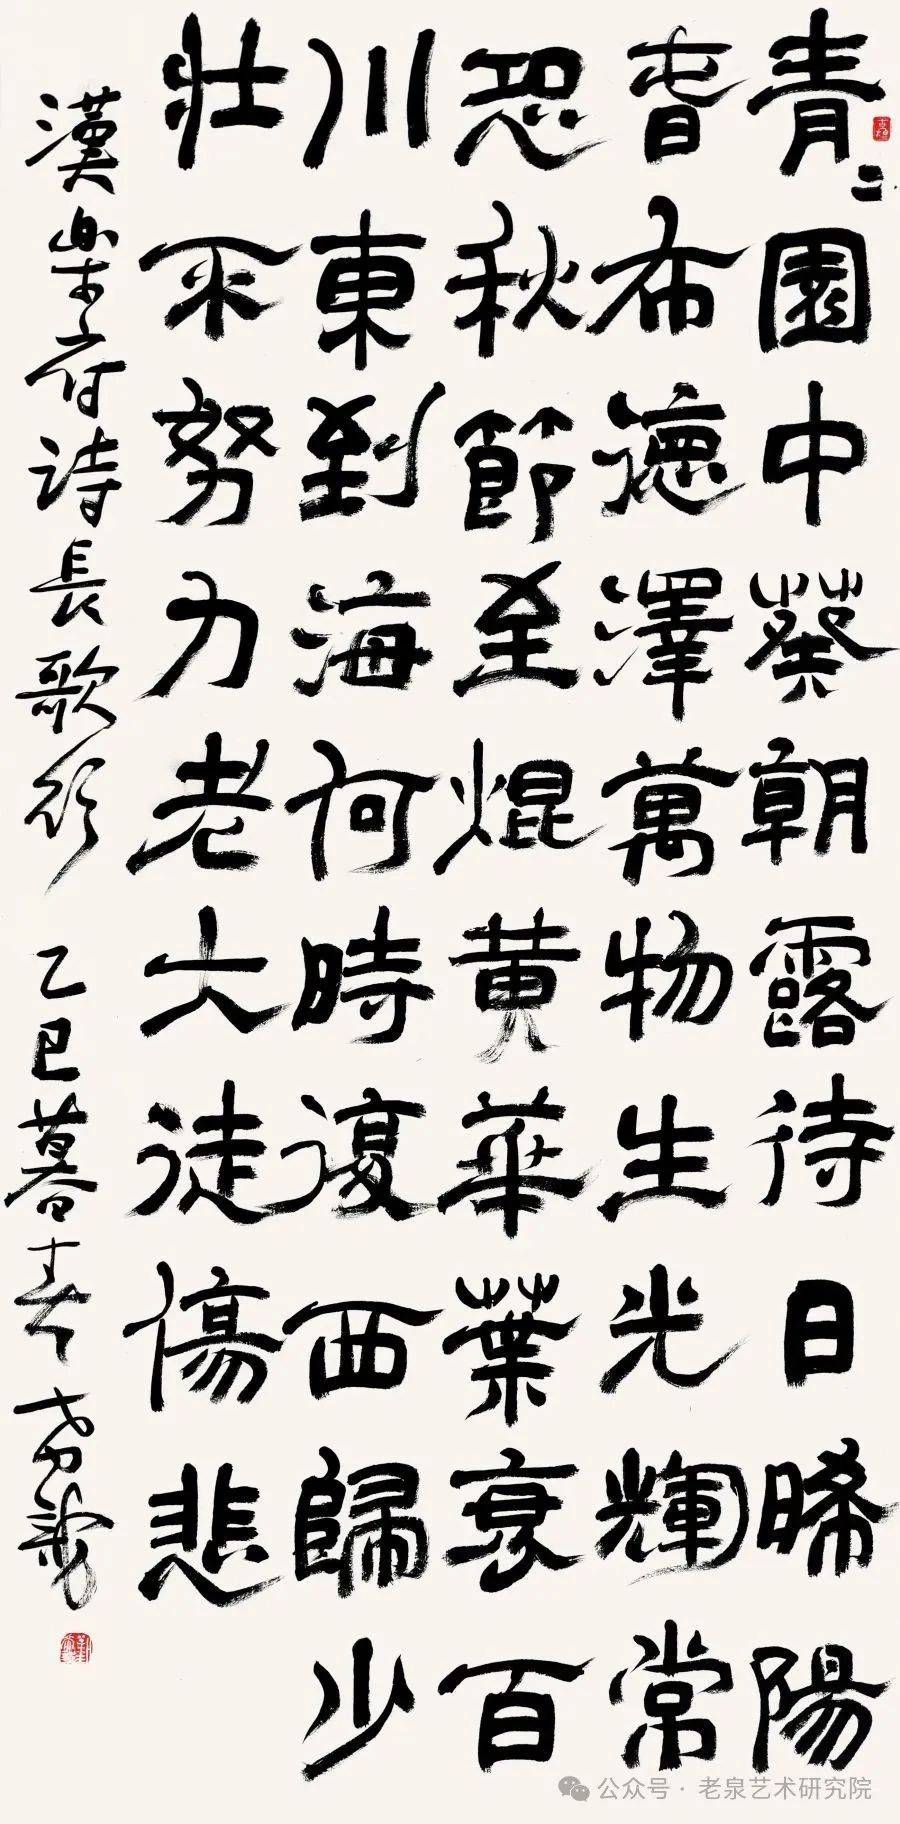 青〻園中葵朝露待日晞陽
春布德澤萬物生光輝常
恐秋節至焜黄華葉衰百
川東到海何時復西歸少
壯不努力老大徒傷悲
漢樂府詩長歌行 乙巳暮春
公众号·老泉艺术研究院